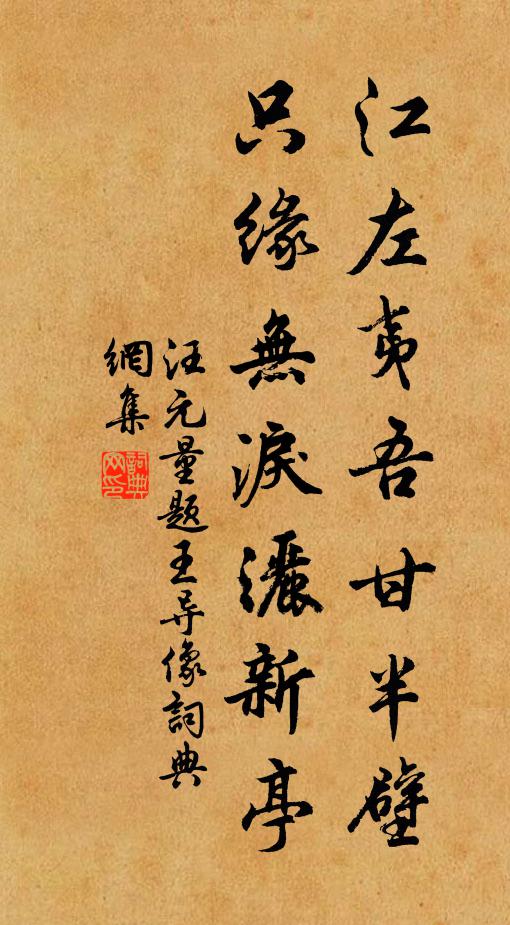 江左夷吾甘半壁
只緣無淚灑新亭
汪元量題王导像詞典
網集
詞典
网印